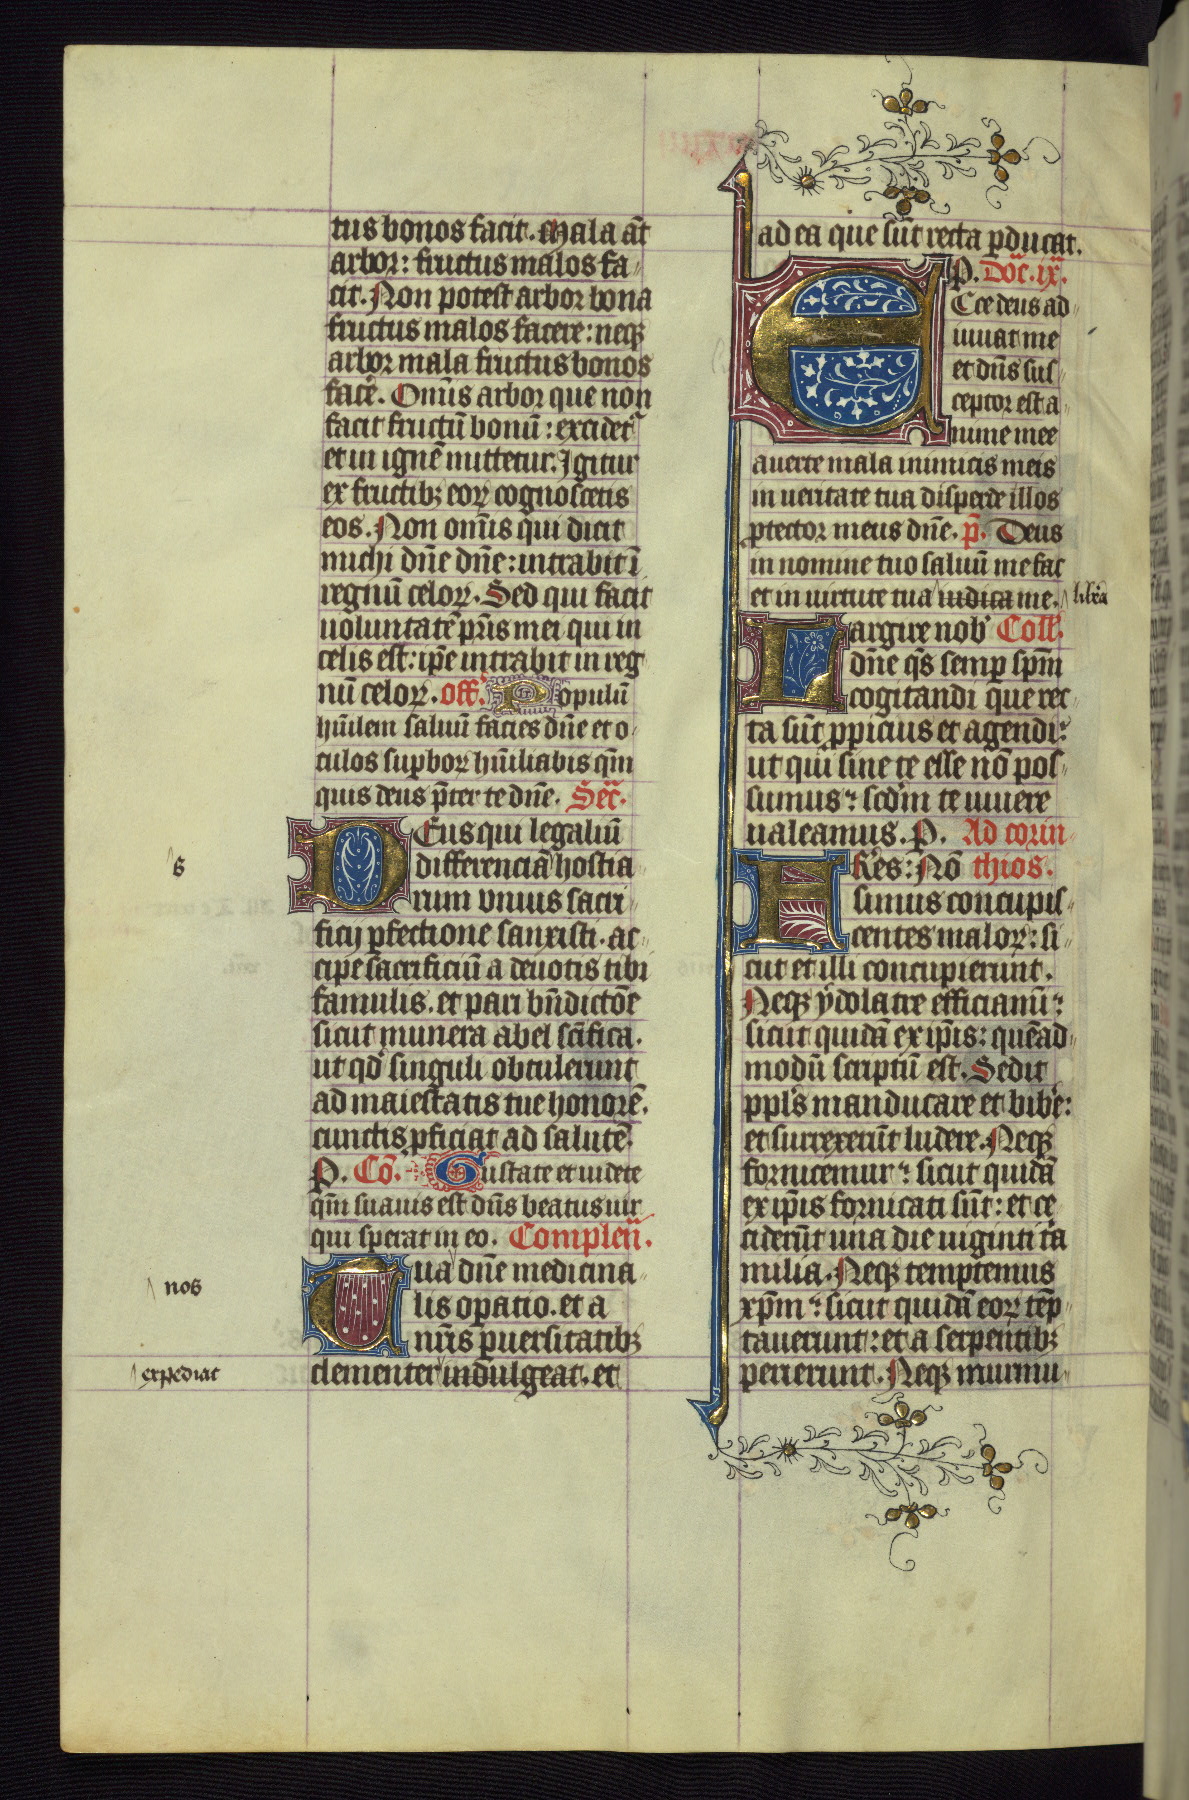 tus bonos facit. Mala aūt
arbor: fructus malos fa-
cit. Non potest arbor bona
fructus malos facere: neqꝫ
arbor mala fructus bonos
face͛. Omīs arbor que non
facit fructū bonū: excidet͛
et in ignē mittetur. Igitur
ex fructibꝫ eoꝝ cognoscetis
eos. Non om̄is qui dicit
michi dn̄e dn̄e: intrabit ī
regnū celoꝝ. Sed qui facit
uoluntatē pr̄is mei qui in
celis est: ip̄e intrabit in reg
nū celoꝝ. off. Populū
hūilem saluū facies dn̄e et o-
culos sup̄boꝝ hūiliabis qm̄
quis deus p̄ter te dn̄e. Sec̄.
Deus qui legaliū
differenciā hostia
rum vnius sacri-
ficij ꝑfectione sanxisti. ac-
cipe sacrificiū a deuotis tibi
famulis. et pari bn̄dictōe
sicut munera abel sc̄ifica.
ut qd̓ singuli obtulerunt
ad maiestatis tue honorē.
cunctis ꝓficiat ad salutē.
P. Cō. Gustate et uidete
qm̄ suauis est dn̄s beatus uir
qui sperat in eo. Complen̄.
Tua dn̄e medicina-
lis oꝑatio. et a
nrīs ꝑuersitatibꝫ
clementer indulgeat. et
s
nos
expediat
ad ea que sūt recta ꝑducat.
P. Doc̄. ix.
Ecce deus ad-
iuuat me
et dn̄s sus-
ceptor est a-
nime mee
auerte mala inimicis meis
in ueritate tua disperde illos
ꝓtector meus dn̄e. p̄. Deus
in nomine tuo saluū me fac
et in uirtute tua iudica me. lib̓a
Largire nob̓ Coll̄.
dn̄e qs̄ semꝑ spm̄
cogitandi que rec-
ta sūt ꝓpicius et agendi:
ut qui sine te esse nō pos-
sumus: scd̄m te uiuere
ualeamus. P. Ad corin-
FRēs: Nō thios.
simus concupis-
centes maloꝝ: si-
cut et illi concupierunt.
Neqꝫ ydolatre efficiam̄:
sicut quidā ex ip̄is: quēad-
modū scriptū est. Sedit
ppl̓s manducare et bibe͛:
et surrexerūt ludere. Neqꝫ
fornicemur: sicut quidā
ex ip̄is fornicati sūt: et ce-
ciderūt una die uiginti t̓a
milia. Neqꝫ temptemus
xp̄m: sicut quidā eoꝝ tēp-
tauerunt: et a serpentibꝫ
perierunt. Neqꝫ murmu-